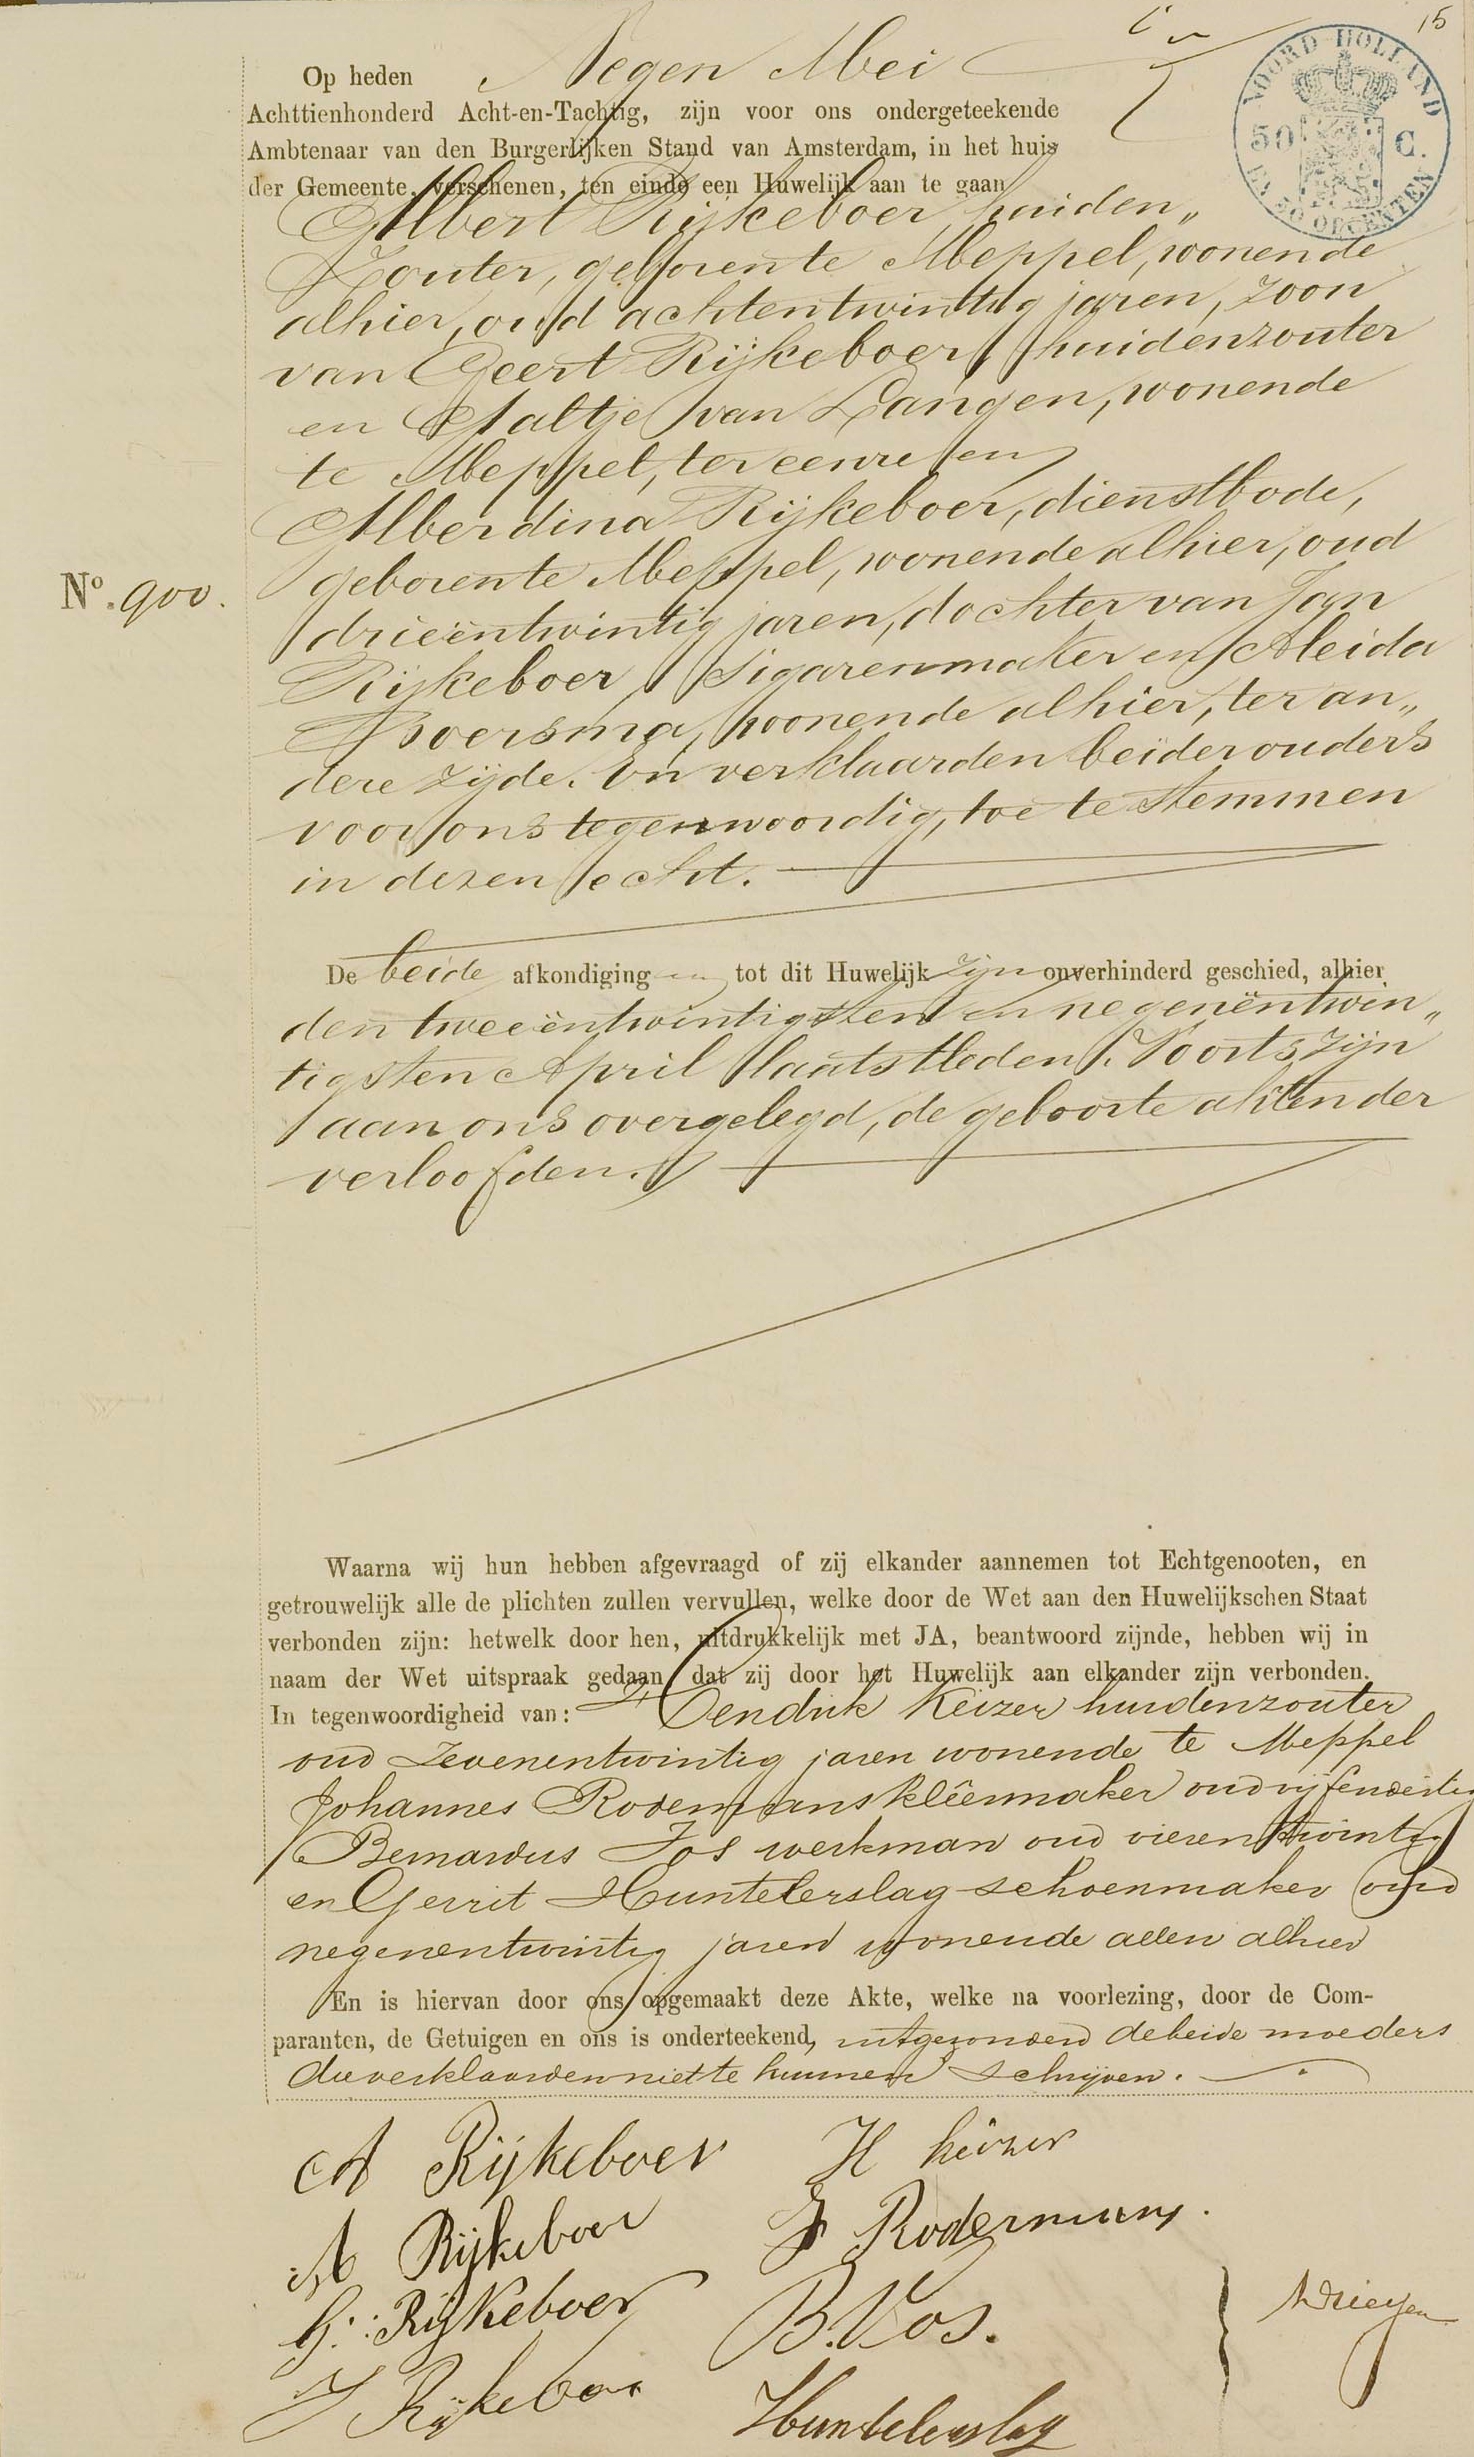 15
NOORD HOLLAND
50 C.
EN 50 OPCENTEN
Op heden Negen Mei
Achttienhonderd Acht-en-Tachtig, zijn voor ons ondergeteekende
Ambtenaar van den Burgerlijken Stand van Amsterdam, in het huis
der Gemeente, verschenen, ten einde een Huwelijk aan te gaan
Albert Rijkeboer, huiden„
zouter, geboren te Meppel, wonende
alhier, oud achtentwintig jaren, zoon
van Geert Rijkeboer, huidenzouter
en Aaltje van Langen, wonende
te Meppel, ter eenre en
Alberdina Rijkeboer, dienstbode,
geboren te Meppel, wonende alhier, oud
No. 900.
drieëntwintig jaren, dochter van Jan
Rijkeboer, sigarenmaker en Aleida
Boersma, wonende alhier, ter an„
dere zijde. En verklaarden beider ouders
voor ons tegenwoordig, toe te stemmen
in dezen echt.
De beide afkondigingen tot dit Huwelijk zijn onverhinderd geschied, alhier
den tweeëntwintigsten en negenëntwin„
tigsten April laatstleden. Voorts zijn
aan ons overgelegd, de geboorte akten der
verloofden.
Waarna wij hun hebben afgevraagd of zij elkander aannemen tot Echtgenooten, en
getrouwelijk alle de plichten zullen vervullen, welke door de Wet aan den Huwelijkschen Staat
verbonden zijn: hetwelk door hen, uitdrukkelijk met JA, beantwoord zijnde, hebben wij in
naam der Wet uitspraak gedaan, dat zij door het Huwelijk aan elkander zijn verbonden.
In tegenwoordigheid van: Hendrik Keizer huidenzouter
oud zevenentwintig jaren wonende te Meppel
Johannes Rodermans kleermaker oud vijfendertig
Bernardus Vos werkman oud vierentwintig
en Gerrit Huntelerslag schoenmaker oud
negenentwintig jaren wonende allen alhier
En is hiervan door ons opgemaakt deze Akte, welke na voorlezing, door de Com-
paranten, de Getuigen en ons is onderteekend, uitgezonderd de beide moeders
die verklaarden niet te kunnen schrijven.
A Rijkeboer H Keizer
A Rijkeboer J Rodermans.
G. Rijkeboer B. Vos.
J Rijkeboer Huntelerslag